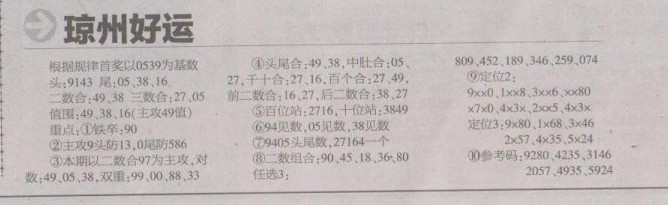 琼州好运
根据规律首奖以0539为基数
头:9143 尾:05、38、16、
二数合:49、38 三数合:27、05
值围:49、38、16(主攻49值)
重点:①铁卒:90
②主攻9头防13,0尾防586
③本期以二数合97为主攻,对
数:49、05、38,双重:99、00、88、33
④头尾合:49、38,中肚合:05、
27,千十合:27、16,百个合:27、49,
前二数合:16、27,后二数合:38、27
⑤百位站:2716,十位站:3849
⑥94见数,05见数,38见数
⑦9405头尾数,27164一个
⑧二数组合:90、45、18、36、80
任选3:
809、452、189、346、259、074
⑨定位2:
9xx0、1xx8、3xx6、xx80
x7x0、4x3x、2xx5、4x3x
定位3:9x80、1x68、3x46
2x57、4x35、5x24
⑩参考码:9280、4235、3146
2057、4935、5924